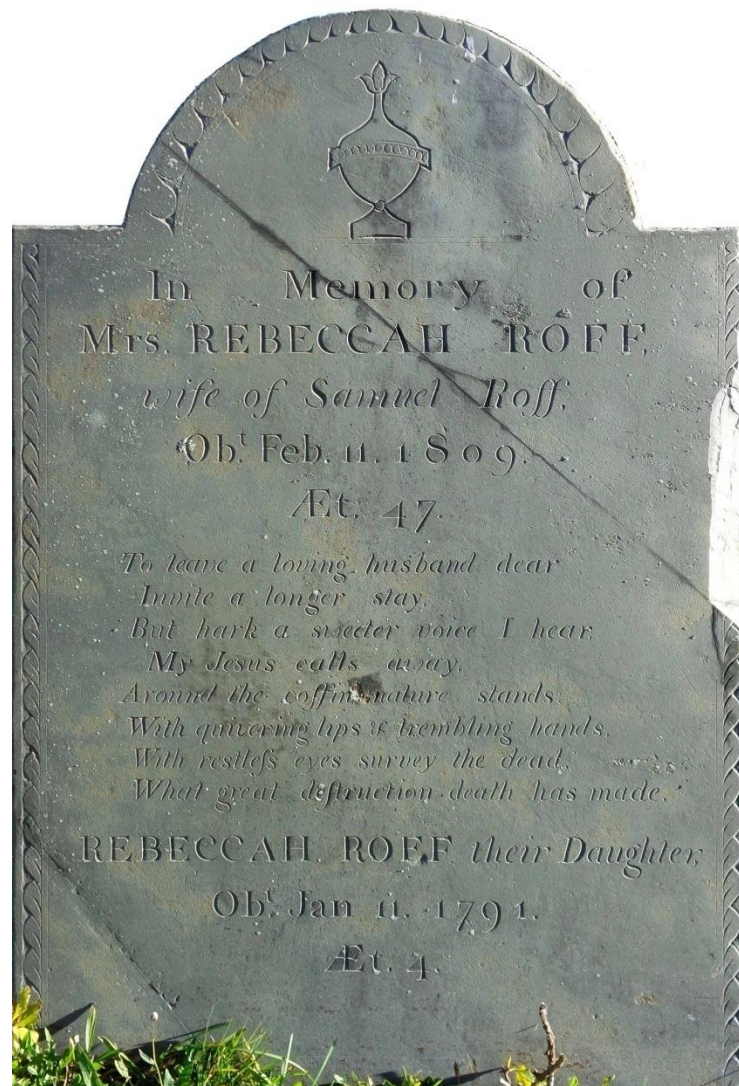 In Memory of
Mrs. REBECCAH ROFF,
wife of Samuel Roff,
Ob.ᵗ Feb. 11. 1809.
Æt. 47.
To leave a loving husband dear
Invite a longer stay,
But hark a sweeter voice I hear,
My Jesus calls away.
Around the coffin nature stands,
With quivering lips & trembling hands,
With restleſs eyes survey the dead,
What great deſtruction death has made.
REBECCAH ROFF their Daughter,
Ob.ᵗ Jan 11. 1791.
Æt. 4.